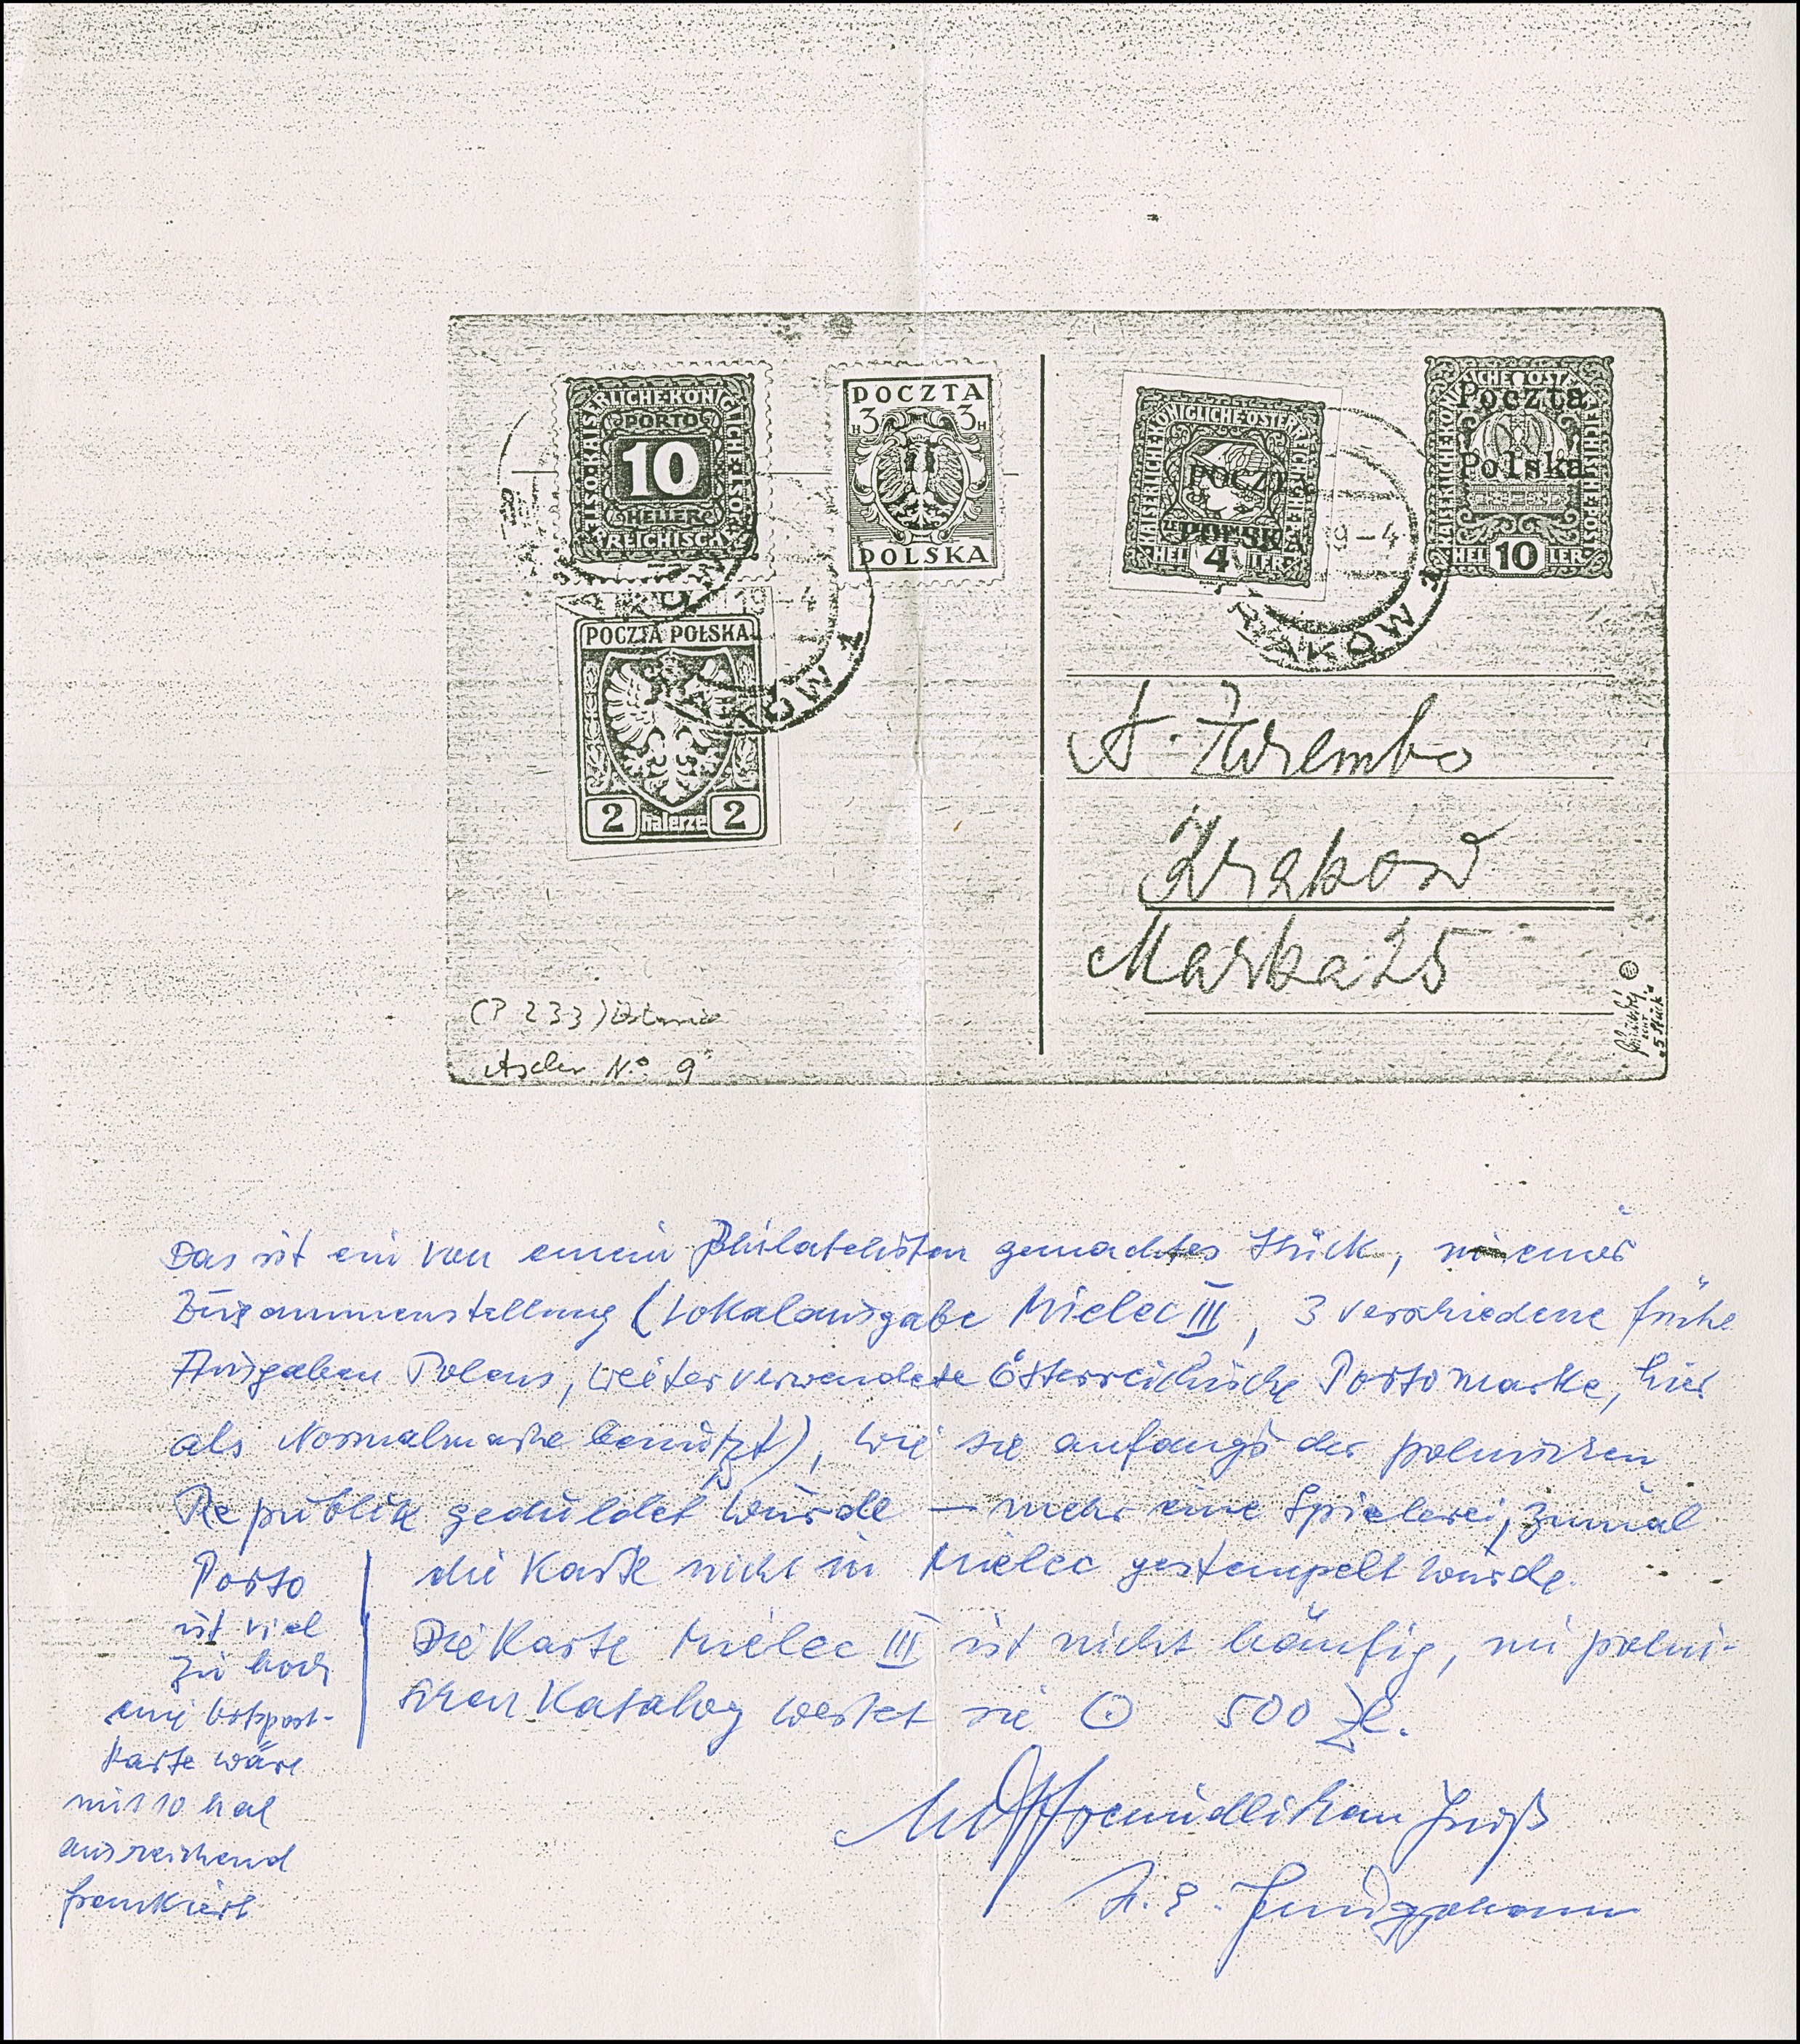 KAISERLICHE KÖNIGLICHE
PORTO
10
HELLER
POCZTA
3H 3H
POLSKA
KAISERLICHE KÖNIGLICHE ÖSTERREICHISCHE POST
POCZTA
POLSKA
HEL 4 LER
Poczta
Polska
HEL 10 LER
19-4
KRAKÓW 1
POCZTA POLSKA
2 halerze 2
A. Zurembo
Kraków
Marka 25
(P 233)
Ascher No. 9
"5 Stück"
Das ist ein von einem Philatelisten gemachtes Stück, in einer
Zusammenstellung (Lokalausgabe Mielec III, 3 verschiedene frühe
Ausgaben Polens, weiterverwendete Österreichische Portomarke, hier
als Normalmarke benützt), wie sie anfangs der polnischen
Republik geduldet wurde — mehr eine Spielerei, zumal
die Karte nicht in Mielec gestempelt wurde.
Die Karte Mielec III ist nicht häufig, im polni-
schen Katalog wertet sie ⊙ 500 Zł.
Porto
ist viel
zu hoch
eine Ortspost-
karte wäre
mit 10 hal
ausreichend
frankiert
Mit freundlichen Gruß